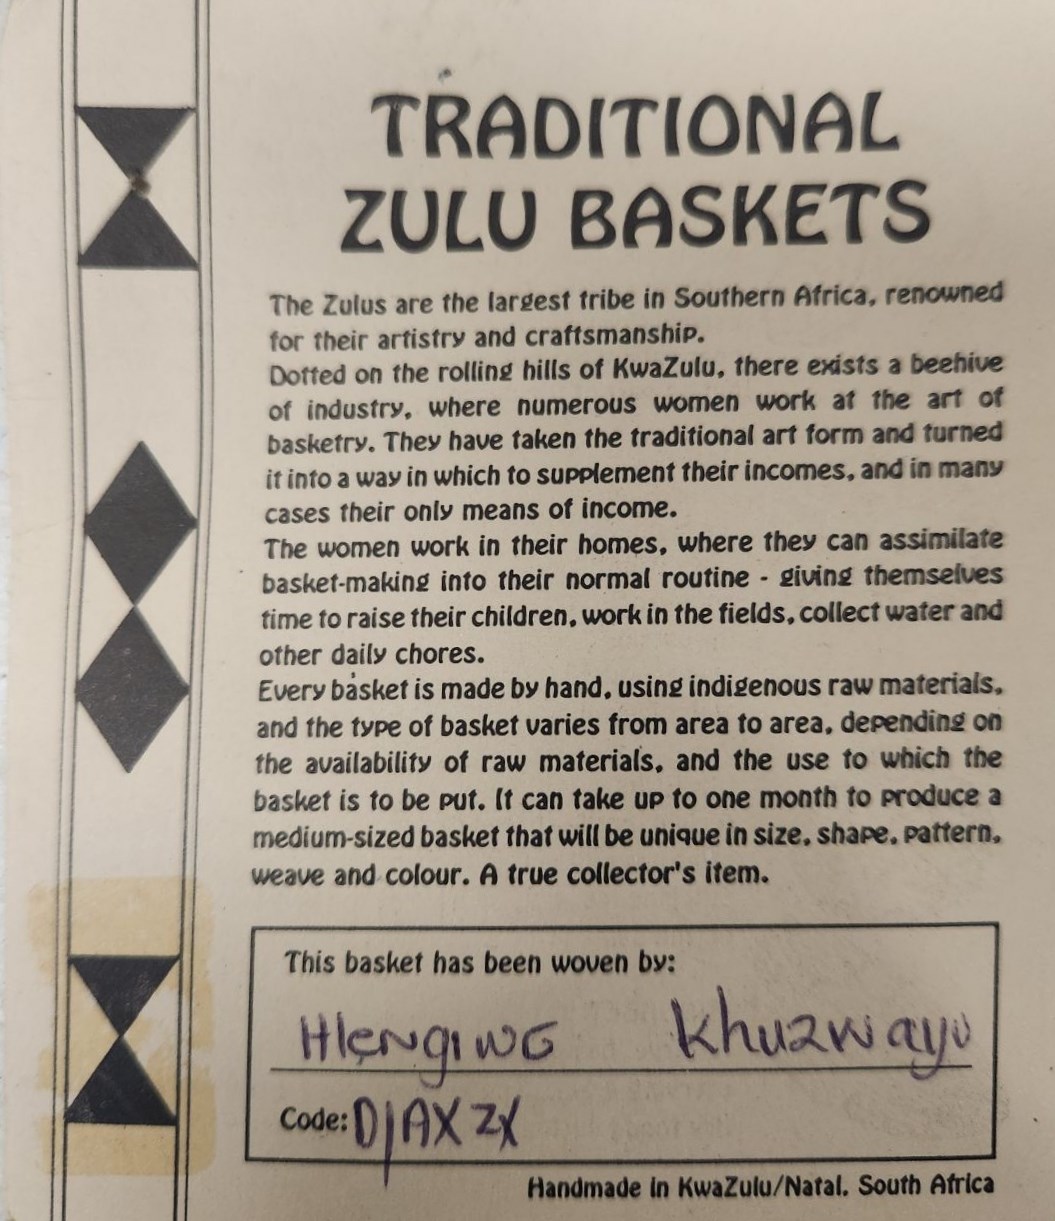 TRADITIONAL
ZULU BASKETS
The Zulus are the largest tribe in Southern Africa, renowned
for their artistry and craftsmanship.
Dotted on the rolling hills of KwaZulu, there exists a beehive
of industry, where numerous women work at the art of
basketry. They have taken the traditional art form and turned
it into a way in which to supplement their incomes, and in many
cases their only means of income.
The women work in their homes, where they can assimilate
basket-making into their normal routine - giving themselves
time to raise their children, work in the fields, collect water and
other daily chores.
Every basket is made by hand, using indigenous raw materials,
and the type of basket varies from area to area, depending on
the availability of raw materials, and the use to which the
basket is to be put. It can take up to one month to produce a
medium-sized basket that will be unique in size, shape, pattern,
weave and colour. A true collector's item.
This basket has been woven by:
Hlengiwe Khuzwayo
Code:
Handmade in KwaZulu/Natal. South Africa